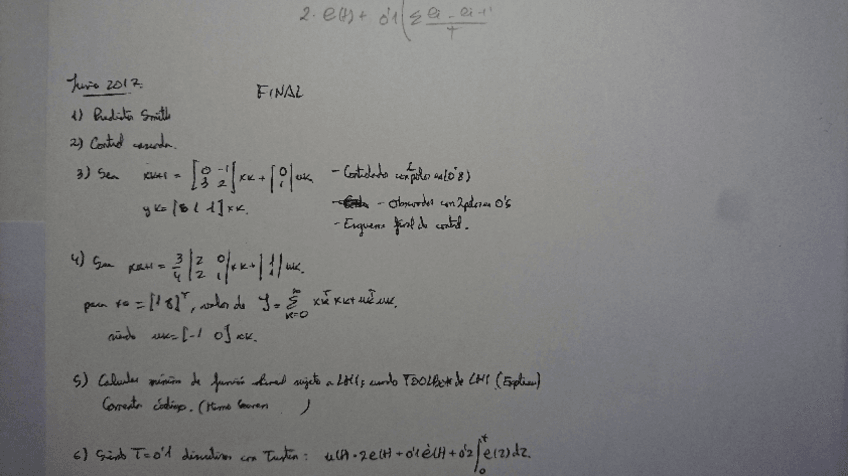 2·e(t) + 0'1 ( Σ (ei - ei-1)/T
Junio 2017. FINAL
1) Predictor Smith
2) Control cascada.
3) Sea xk+1 = [0 -1; 3 2] xk + [0; 1] uk - Controlador con 2 polos en (0'8)
yk = [ 1] xk. - Observador con 2 polos en 0'5
- Esquema final de control.
4) Sea xk+1 = 3/4 |2 0; 2 1| xk + |1; 1| uk.
para x0 = [1 8]ᵀ, valor de J = Σ k=0 ∞ xkᵀ xk + ukᵀ uk.
siendo uk = [-1 0] xk.
5) Calcular mínimo de función lineal sujeto a LMIs usando TOOLBOX de LMI (Explicar)
Comentar código. ( )
6) Siendo T=0'1 discretizar con Tustin: u(t) = 2e(t) + 0'1ė(t) + 0'2 ∫₀ᵗ e(z) dz.